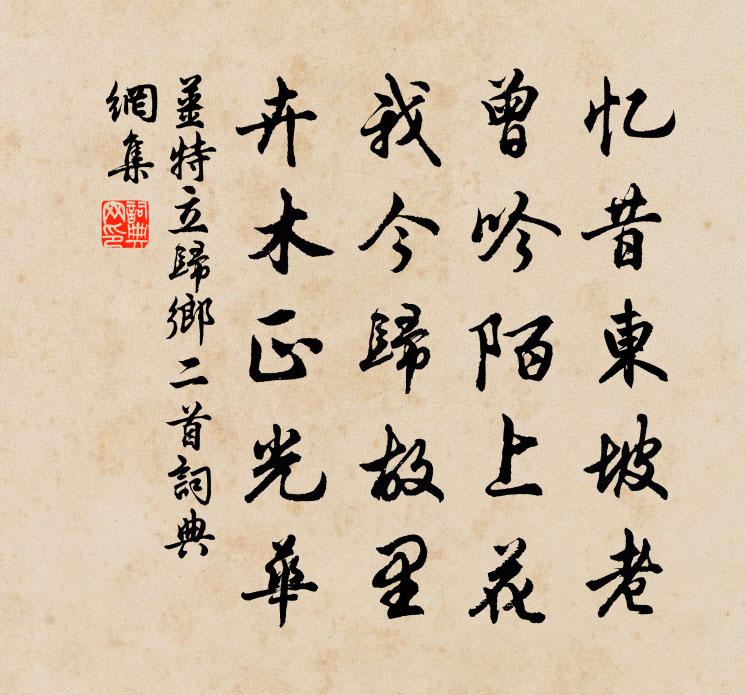 忆昔東坡老
曾吟陌上花
我今歸故里
卉木正光華
姜特立歸鄉二首詞典
網集
詞典
網印